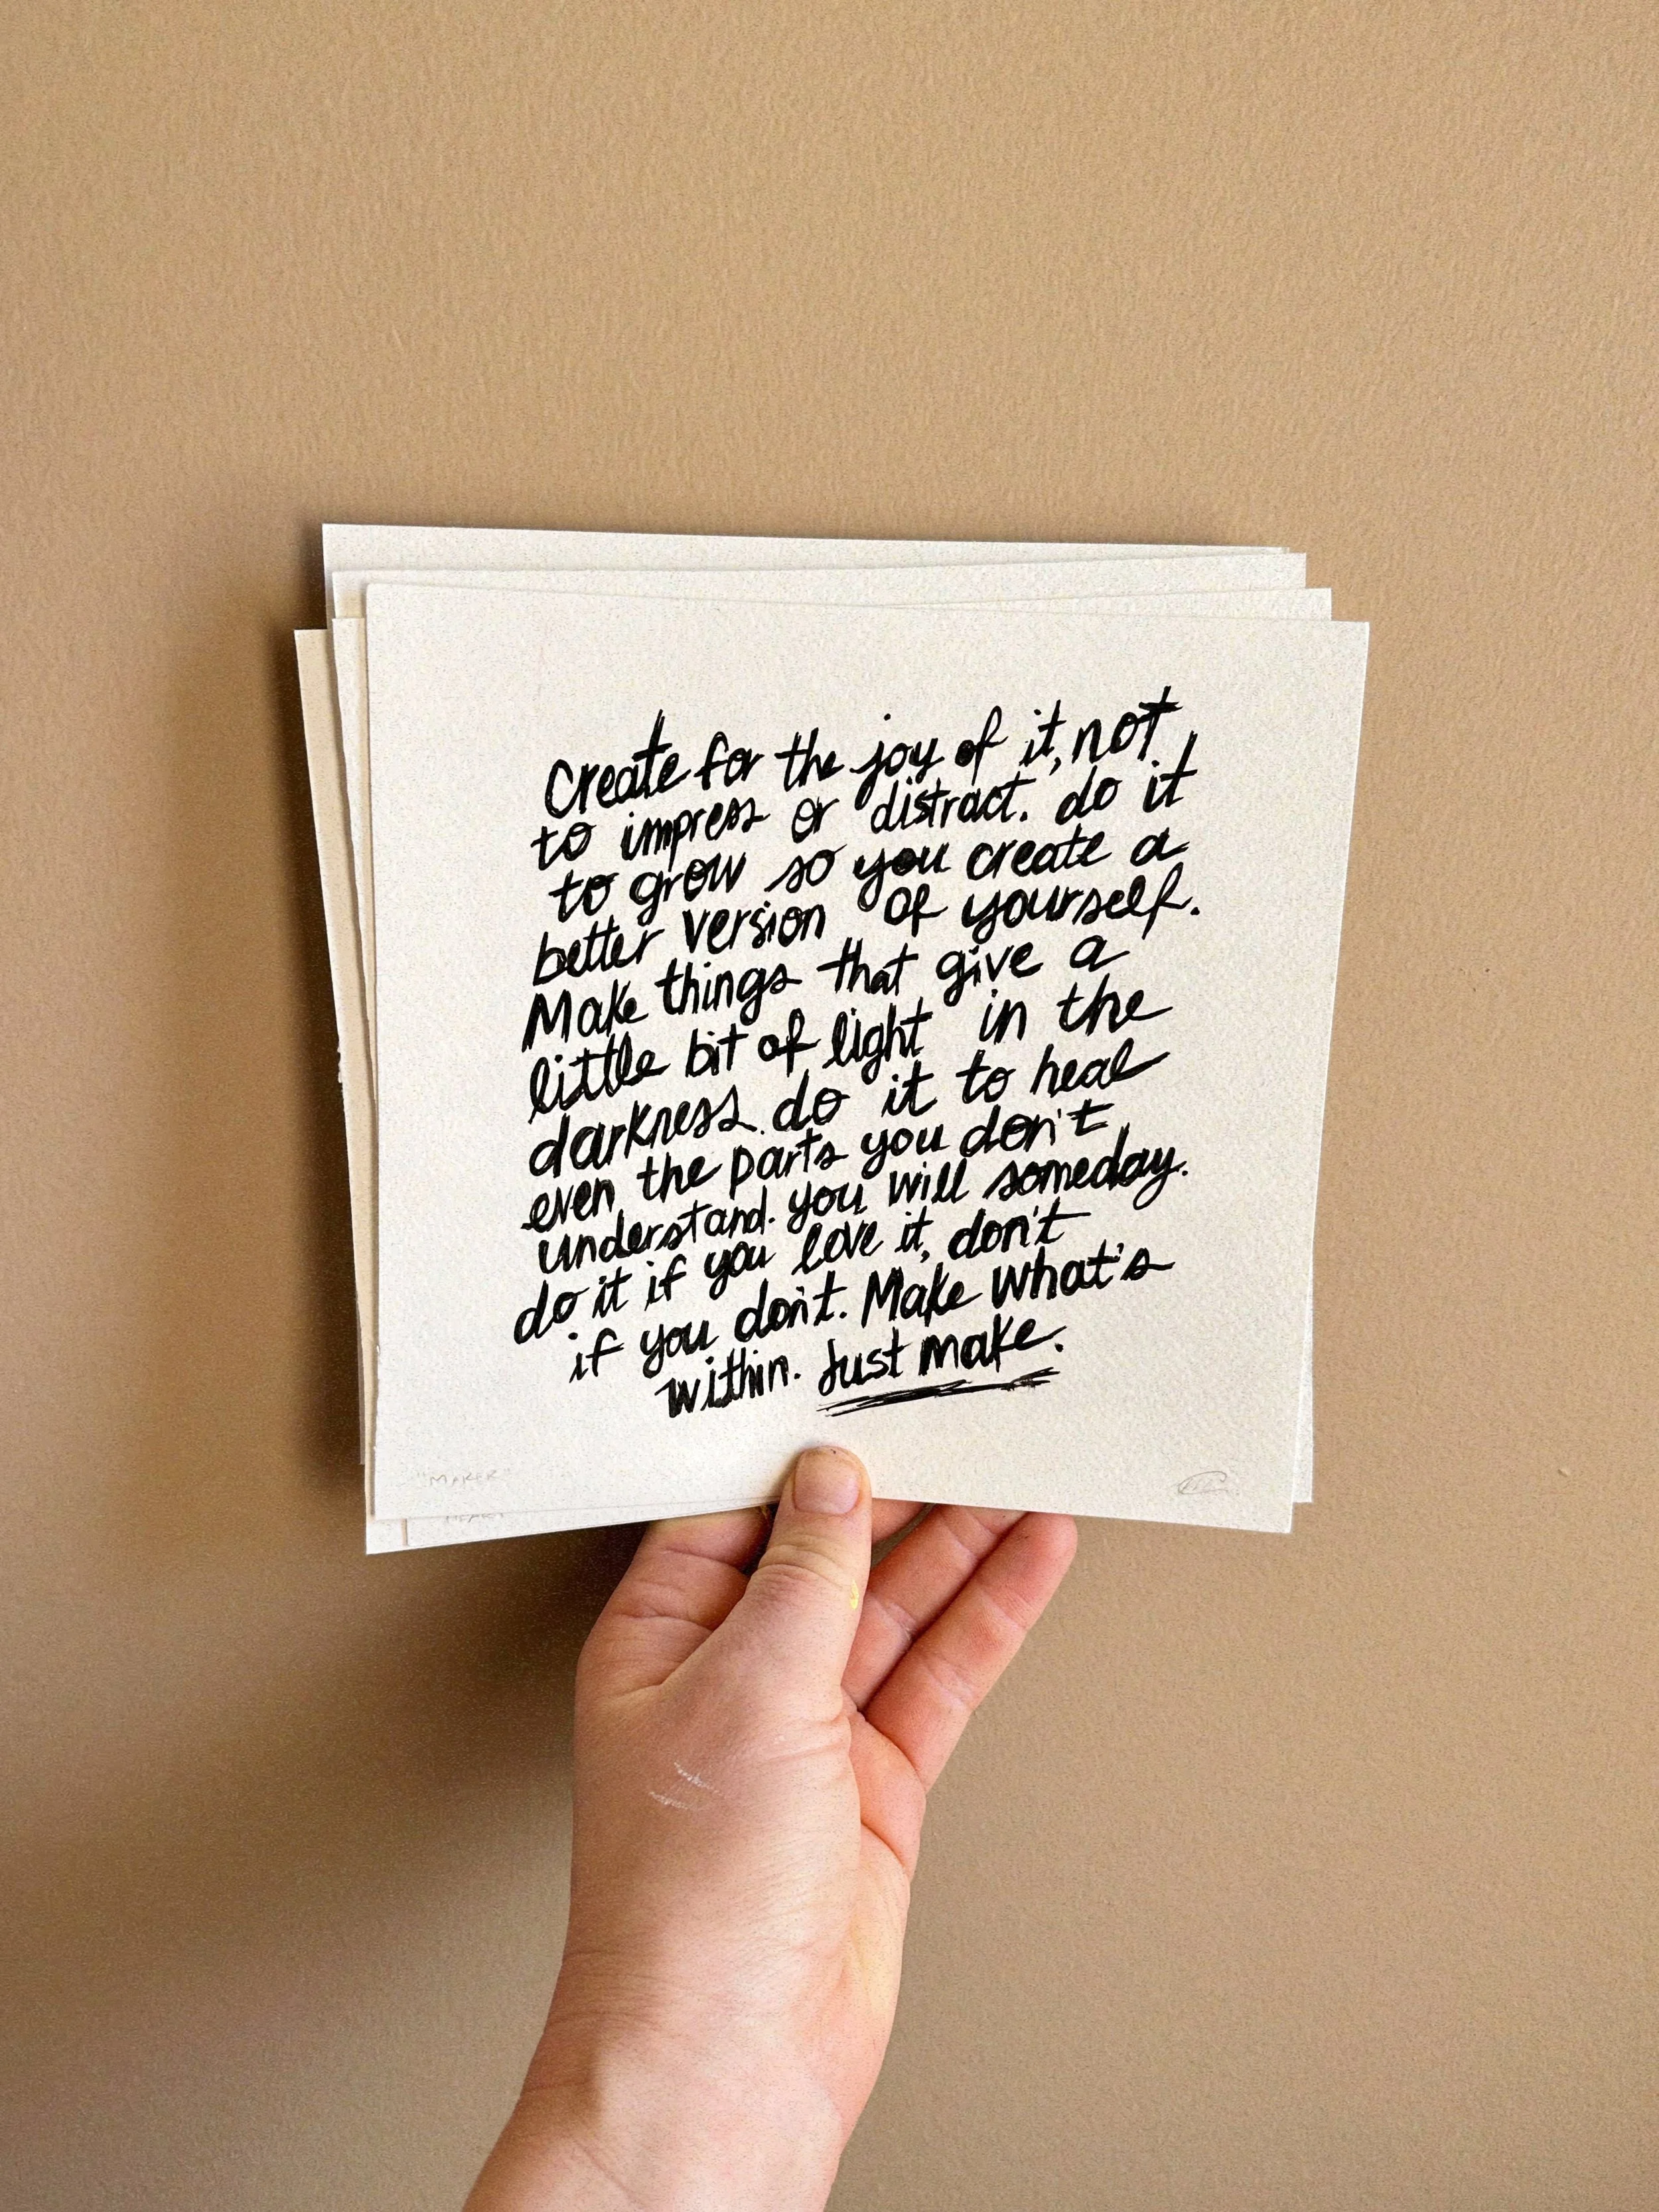 Create for the joy of it, not
to impress or distract. do it
to grow so you create a
better version of yourself.
Make things that give a
little bit of light in the
darkness. do it to heal
even the parts you don't
understand. you will someday.
do it if you love it, don't
if you don't. Make what's
within. Just make.
"MAKER"